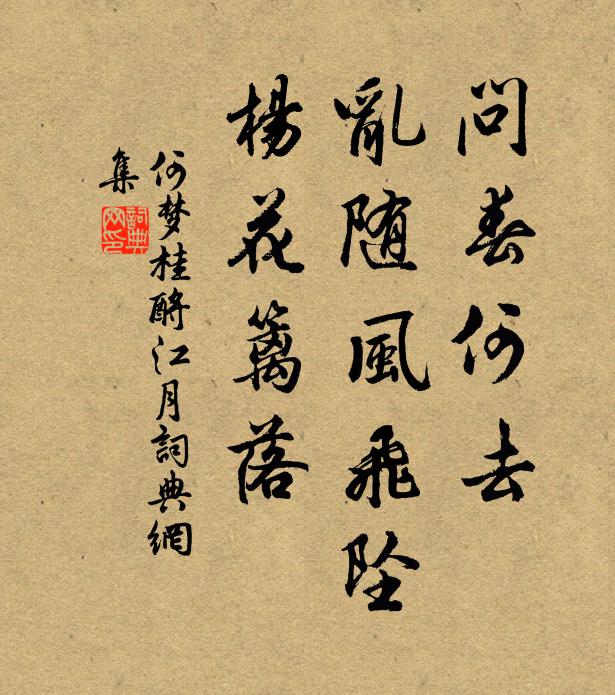 問春何去
亂随風飛坠
楊花篱落
何梦桂酹江月詞典網
集
詞典
网印